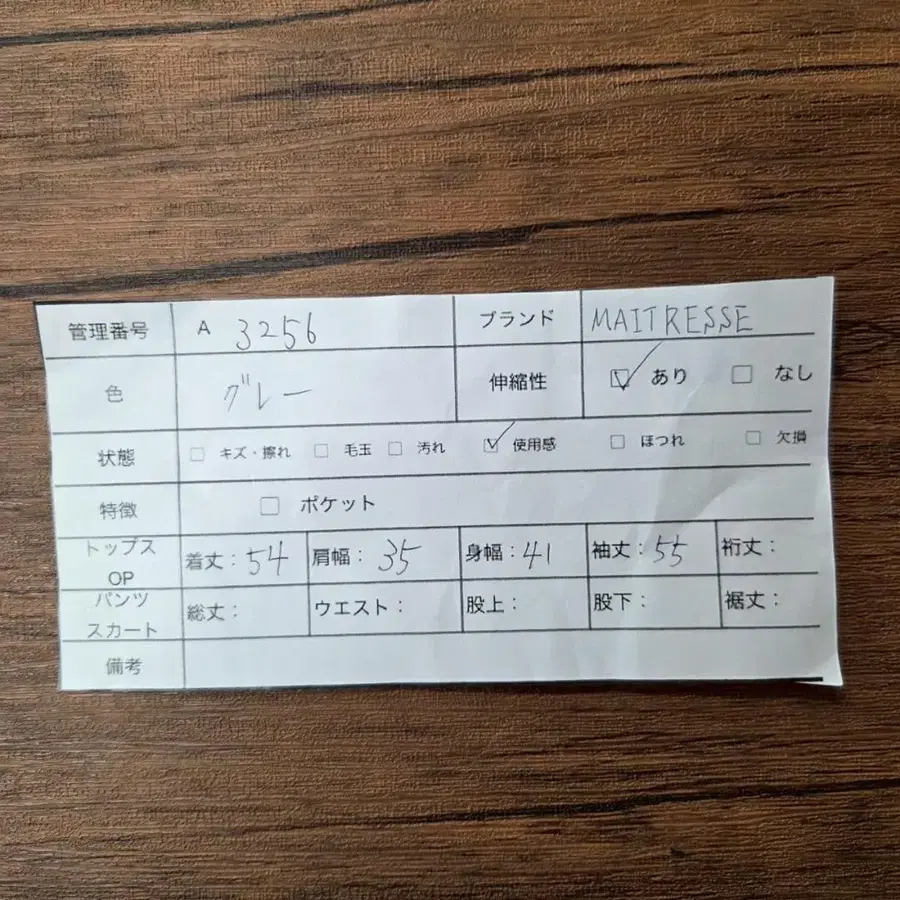 管理番号 A 3256 ブランド MAITRESSE
色 グレー 伸縮性 ☑ あり ☐ なし
状態 ☐ キズ・擦れ ☐ 毛玉 ☐ 汚れ ☑ 使用感 ☐ ほつれ ☐ 欠損
特徴 ☐ ポケット
トップス
OP
着丈：54 肩幅：35 身幅：41 袖丈：55 裄丈：
パンツ
スカート
総丈： ウエスト： 股上： 股下： 裾丈：
備考